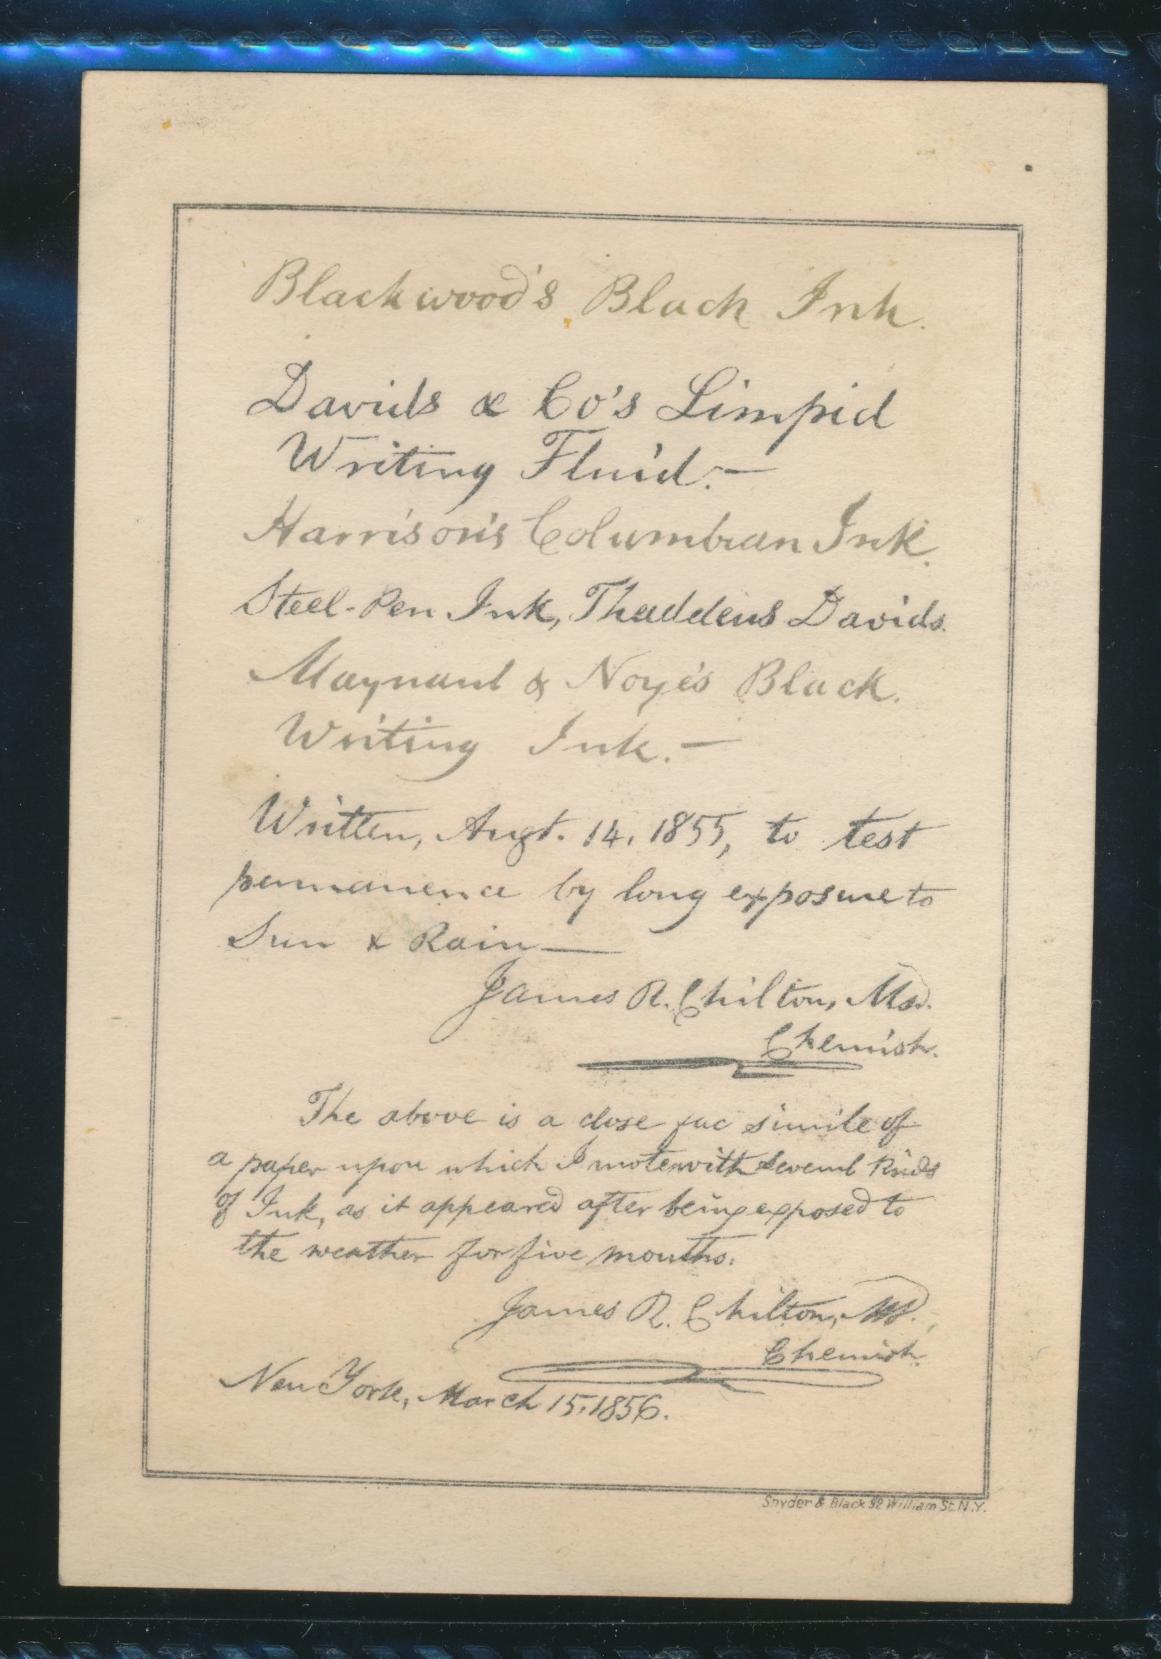 Blackwood's Black Ink.
Davids & Co's Limpid
Writing Fluid.—
Harrison's Columbian Ink.
Steel-Pen Ink, Thaddeus Davids.
Maynard & Noye's Black.
Writing Ink.—
Written, Augt. 14, 1855, to test
permanence by long exposure to
Sun & Rain—
James R. Chilton, MD.
Chemist.
The above is a close fac simile of
a paper upon which I wrote with several kinds
of Ink, as it appeared after being exposed to
the weather for five months.
James R. Chilton, MD.
Chemist.
New York, March 15, 1856.
Snyder & Black 92 William St. N.Y.